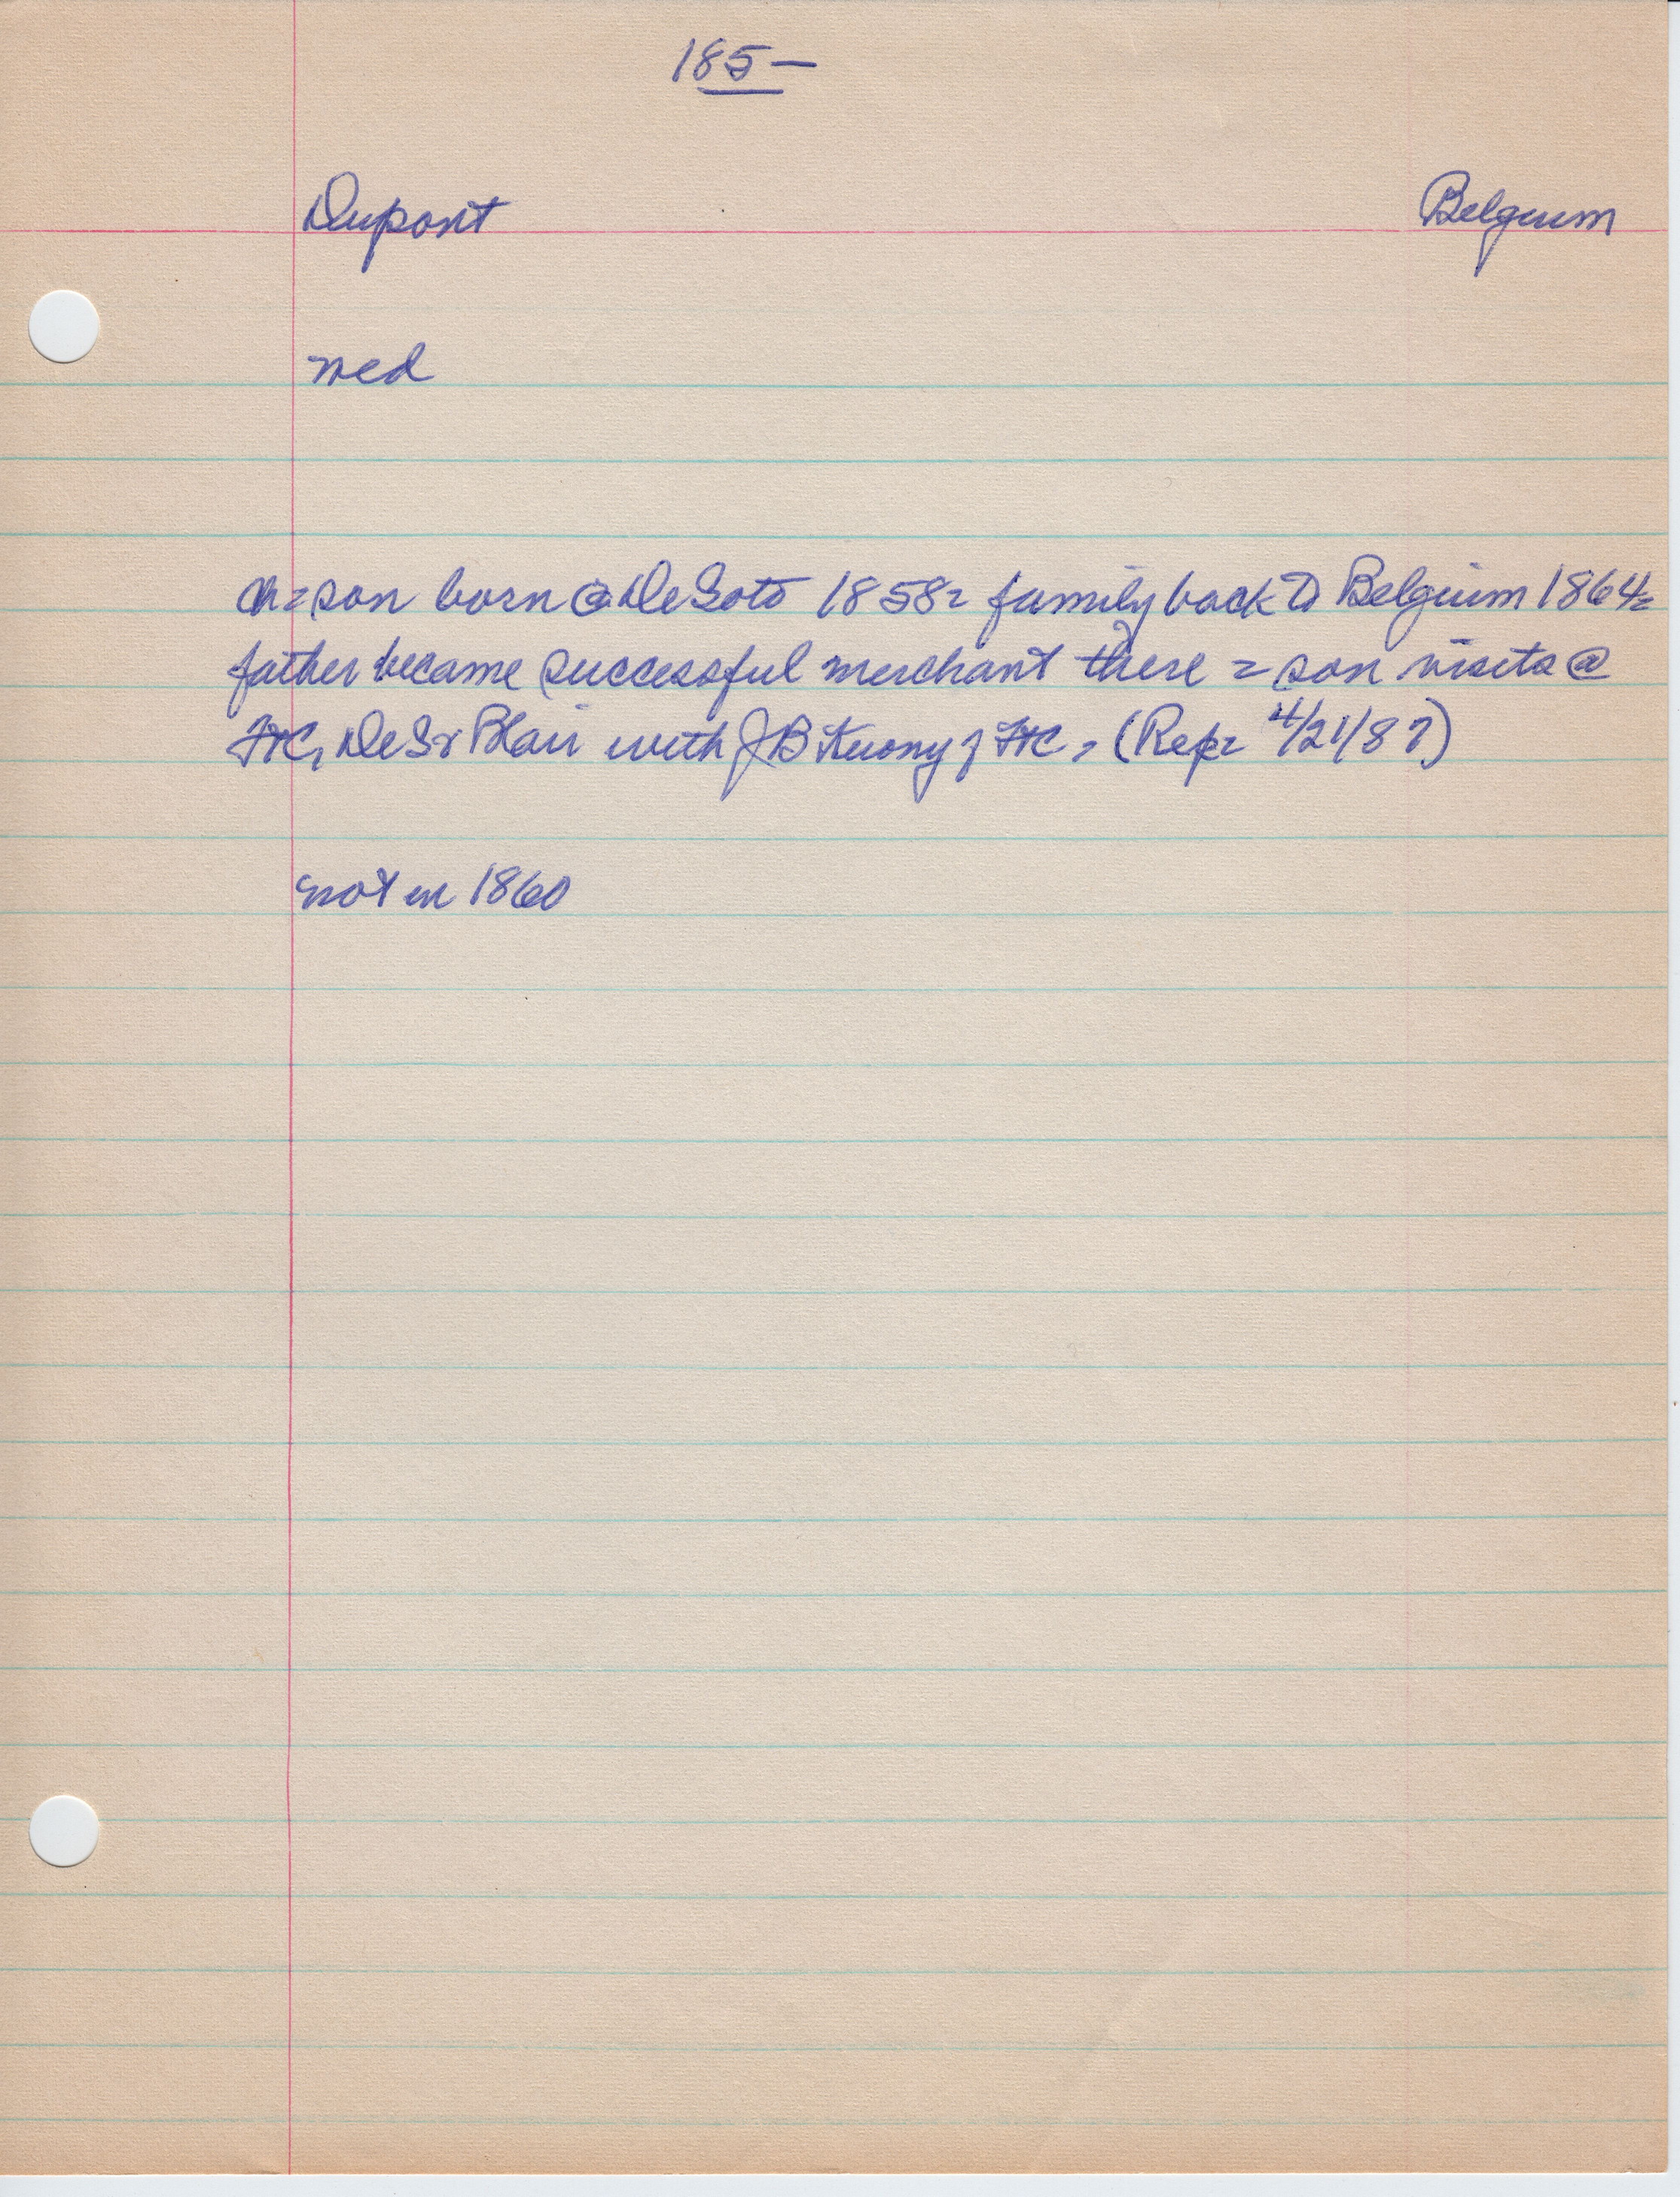 185-
Dupont Belgium
med
Ch = son born @ DeSoto 1858 = family back to Belgium 1864 =
father became successful merchant there = son visits @
FtC, DeS & Blair with JB Kuony of FtC, (Rep = 4/21/87)
not in 1860